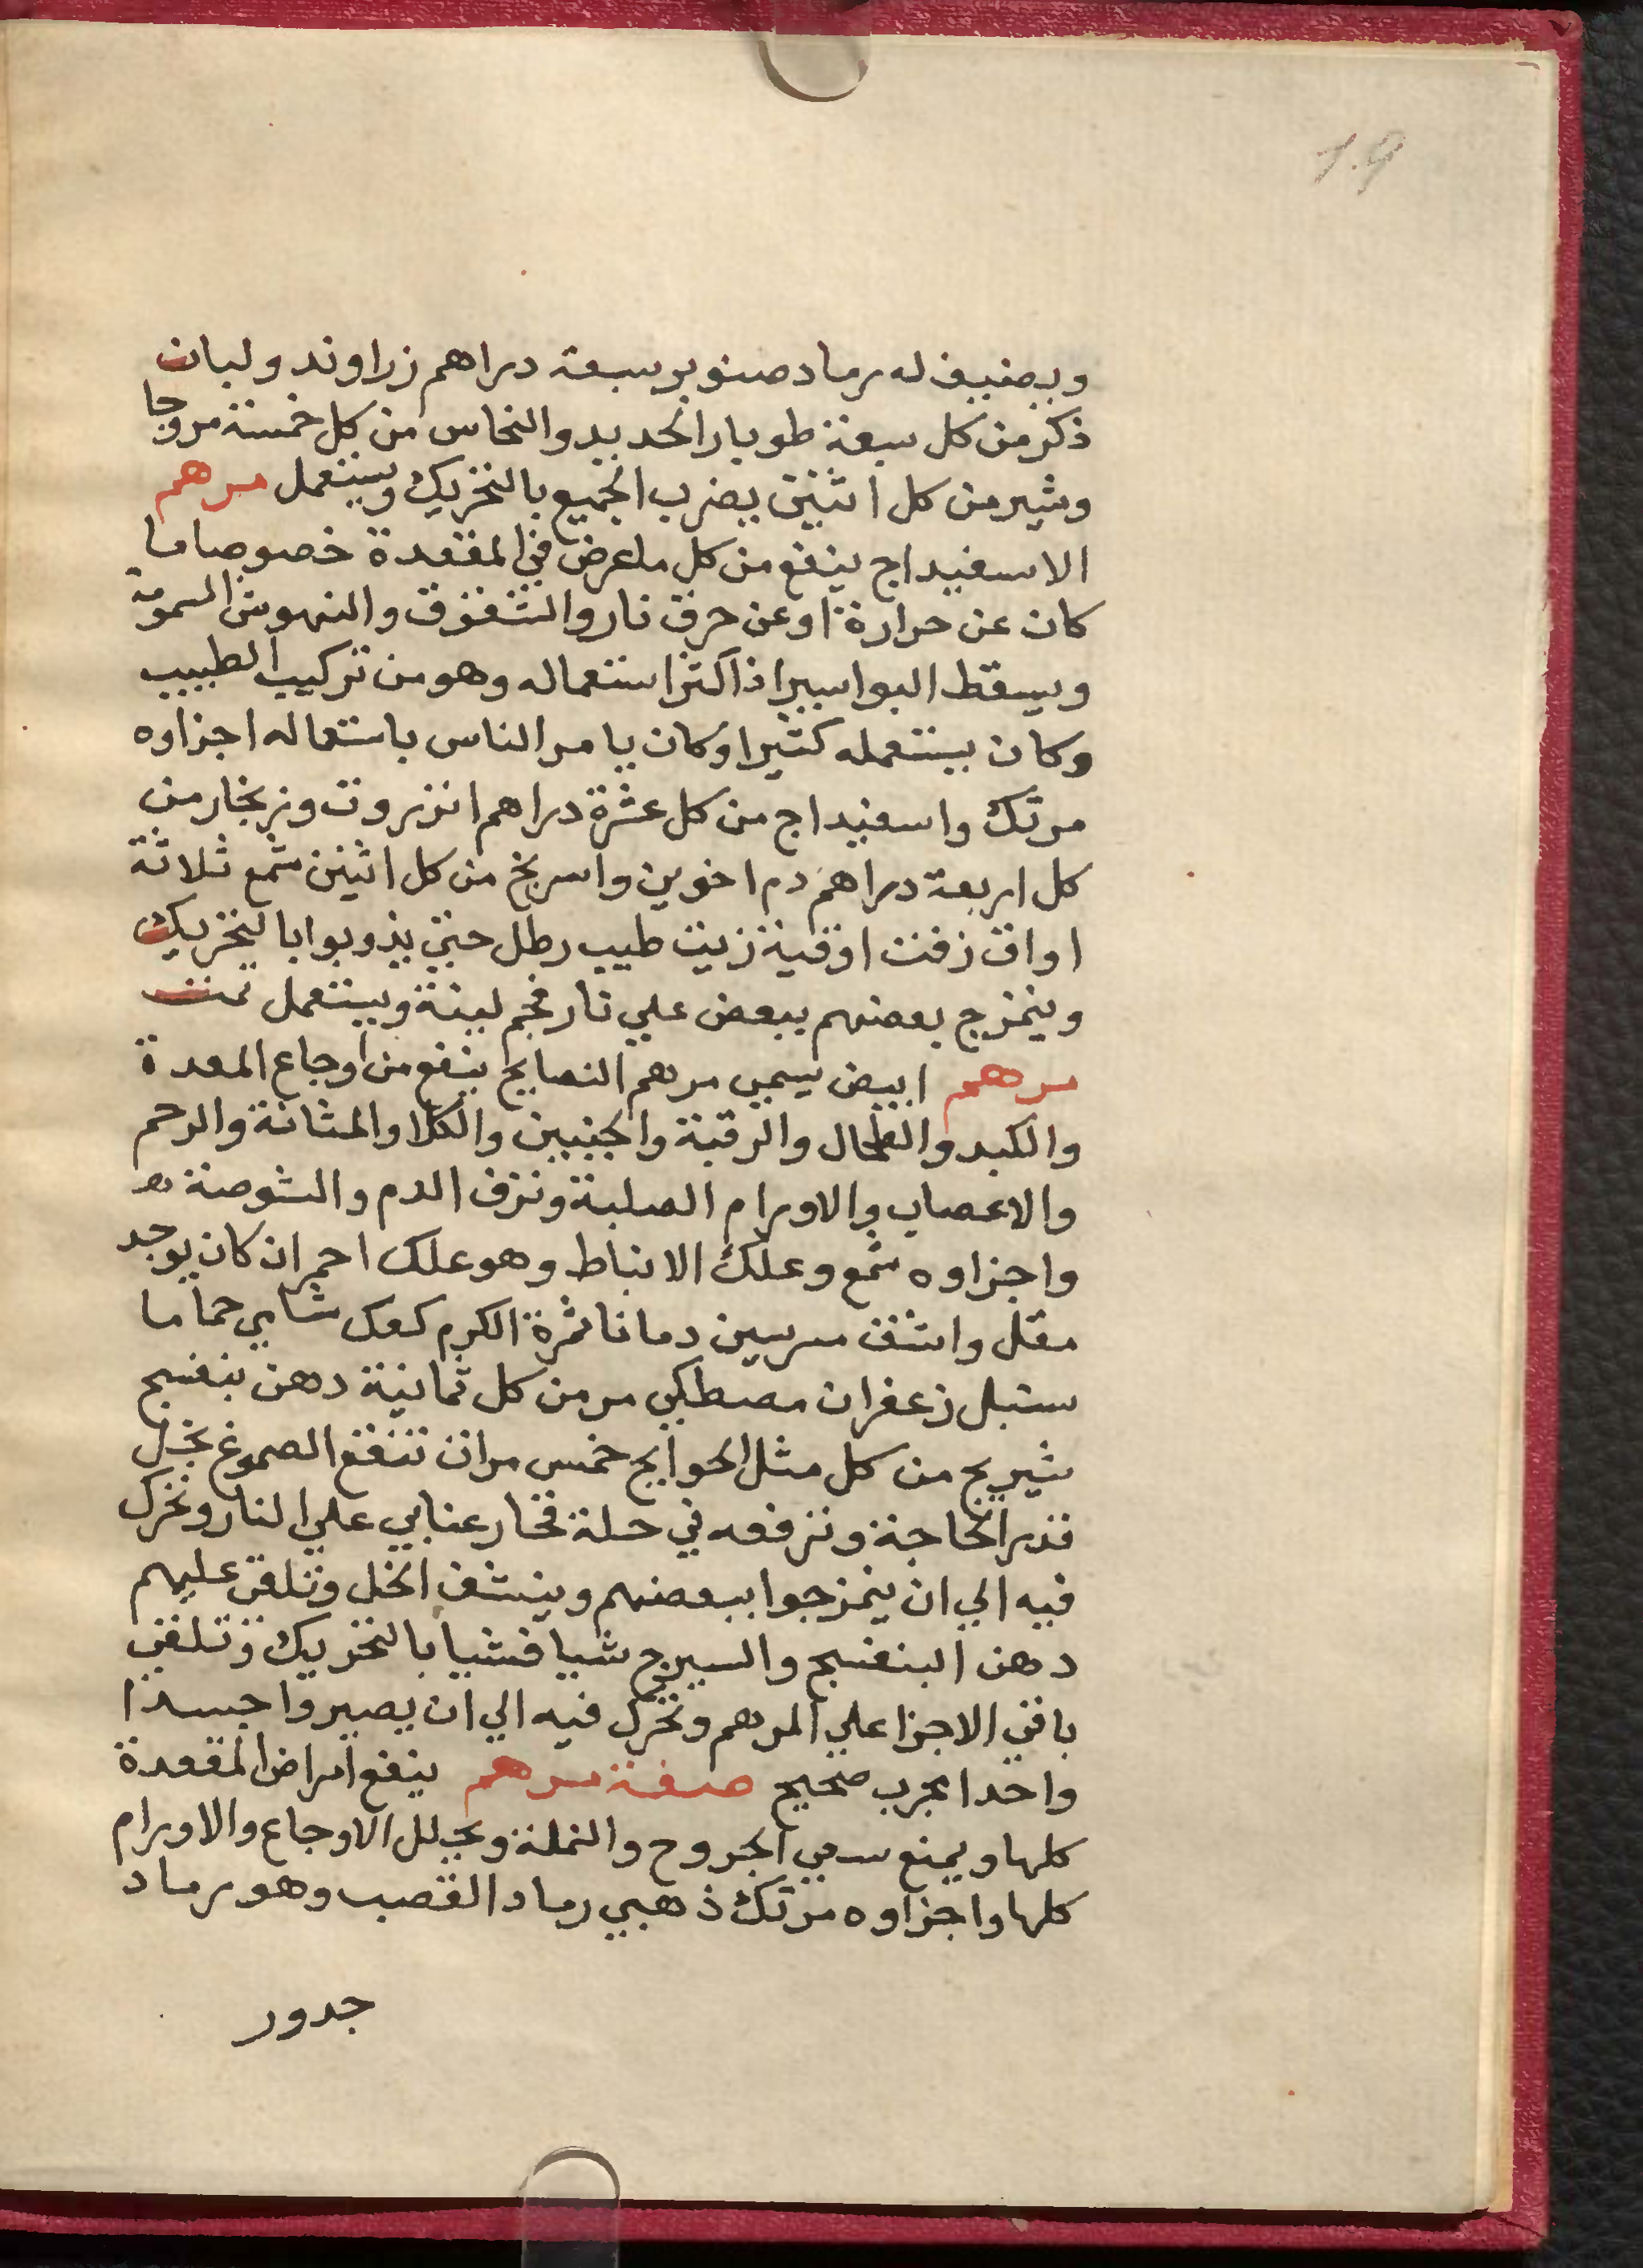 1.9
ويضيف له رماد صنوبر سبعة دراهم زراوند ولبان
ذكر من كل سبعة طوبار الحديد والنحاس من كل خمسة مر وجا
وشير من كل اثنين يضرب الجميع بالتحريك ويستعمل مرهم
الاسفيداج ينفع من كل ما عرض في المقعدة خصوصا ما
كان عن حرارة او عن حرق نار والشقوق والنهوش السمومية
ويسقط البواسير اذا كثر استعماله وهو من تركيب الطبيب
وكان يستعمله كثيرا وكان يامر الناس باستعماله اجزاوه
مرتك واسفيداج من كل عشرة دراهم انزروت وزنجار من
كل اربعة دراهم دم اخوين واسريخ من كل اثنين شمع ثلاثة
اواق زفت اوقية زيت طيب رطل حتي يذوبوا بالتحريك
ويمتزج بعضهم ببعض علي نار فحم لينة ويستعمل تمت
مرهم ابيض يسمي مرهم النصايح ينفع من اوجاع المعدة
والكبد والطحال والرقبة والجنبين والكلا والمثانة والرحم
والاعصاب والاورام الصلبة ونزف الدم والشوصة
واجزاوه شمع وعلك الانباط وهو علك احمر ان كان يوجد
مقل واشق مرسين دمانا ثمرة الكرم كعك شامي حماما
سنبل زعفران مصطكي مر من كل ثمانية دهن بنفسج
شيرج من كل مثل الحوايج خمس مرات تنقع الصموغ بخل
قدر الحاجة وترفعه في حلة فخار عنابي علي النار وتحرك
فيه الي ان يمتزجوا ببعضهم وينشف الخل وتلقي عليهم
دهن البنفسج والسيرج شيا فشيا بالتحريك وتلقي
باقي الاجزا علي المرهم وتحرك فيه الي ان يصيروا جسدا
واحدا مجرب صحيح صفة مرهم ينفع امراض المقعدة
كلها ويمنع سعي الجروح والنملة ويحلل الاوجاع والاورام
كلها واجزاوه مرتك ذهبي رماد القصب وهو رماد
جدور